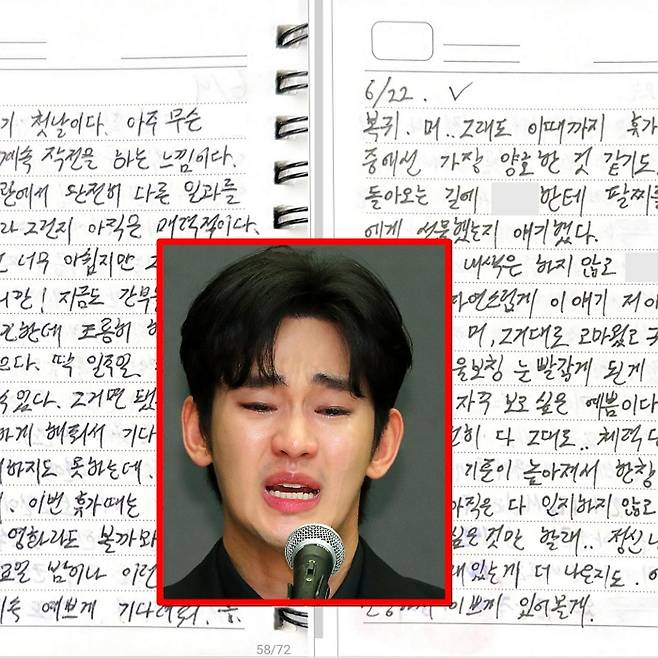 기 첫날이다. 아주 무슨
계속 작전을 하는 느낌이다.
관에서 완전히 다른 일과를
라 그런지 아직은 매력적이다.
너무 아쉽지만
니깐! 지금도 간부
한데 조용히
다. 딱 일주일.
있다. 그거면 됐
하게 해줘서 기다
하지도 못하는데.
이번 휴가때는
영화라도 볼까
요일 밤이나 이런
계속 예쁘게 기다려줘.
58/72
6/22. ✓
복귀. 머.. 그래도 이때까지 휴가
중에선 가장 양호한 것 같기도.
돌아오는 길에 한테 팔찌를
에게 선물했는지 얘기했다.
내색은 하지 않고
자연스럽게 이 얘기 저
머, 그거대로 고마웠고
눈 빨갛게 된게
자꾸 보고싶은 예쁨이다
다 그대로.. 체력
기온이 높아져서 한창
아직은 다 인지하지 않고
싶은것만 할래.. 정신
있는게 더 나은지도.
이쁘게 있어볼게.